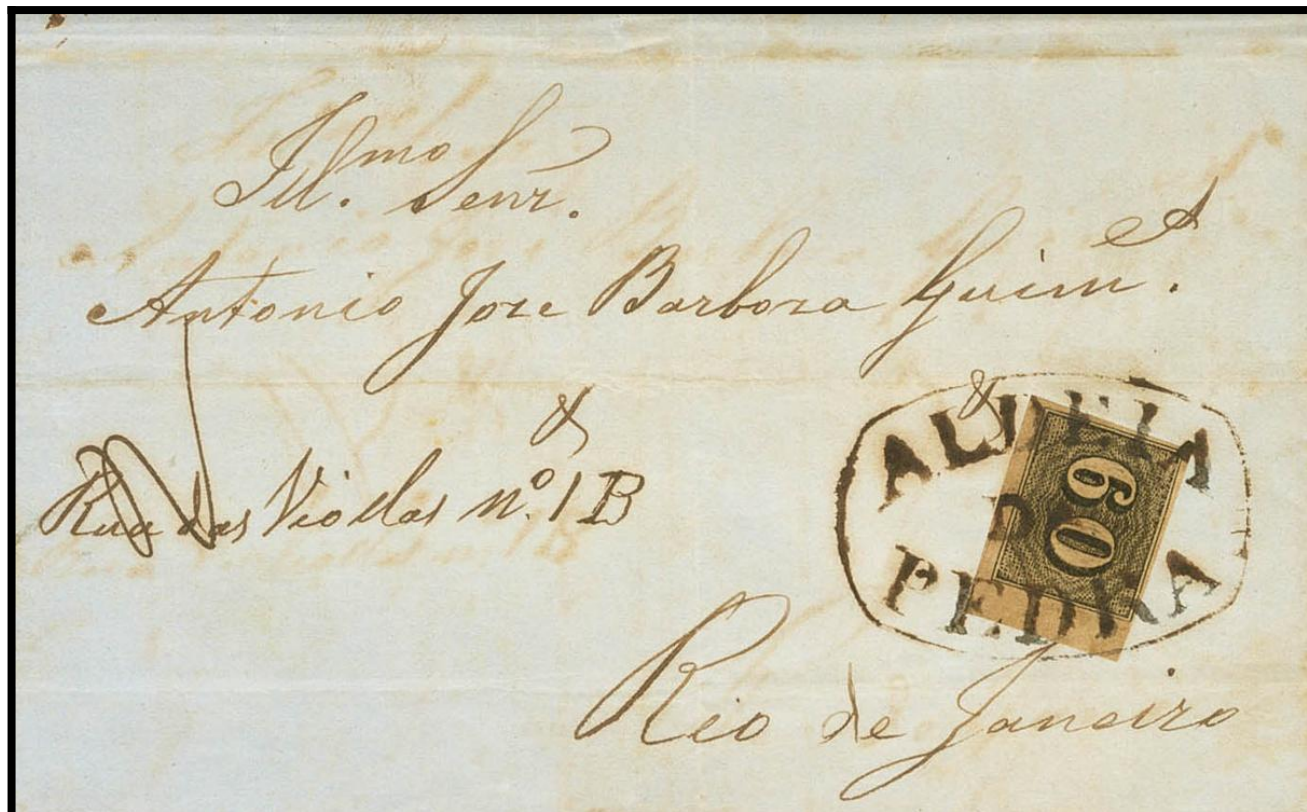 Ill.mo Senr.
Antonio Joze Barboza Guim.es
&
Rua das Viollas n.º 1 B
ALDEIA
DA
PEDRA
60
Rio de Janeiro